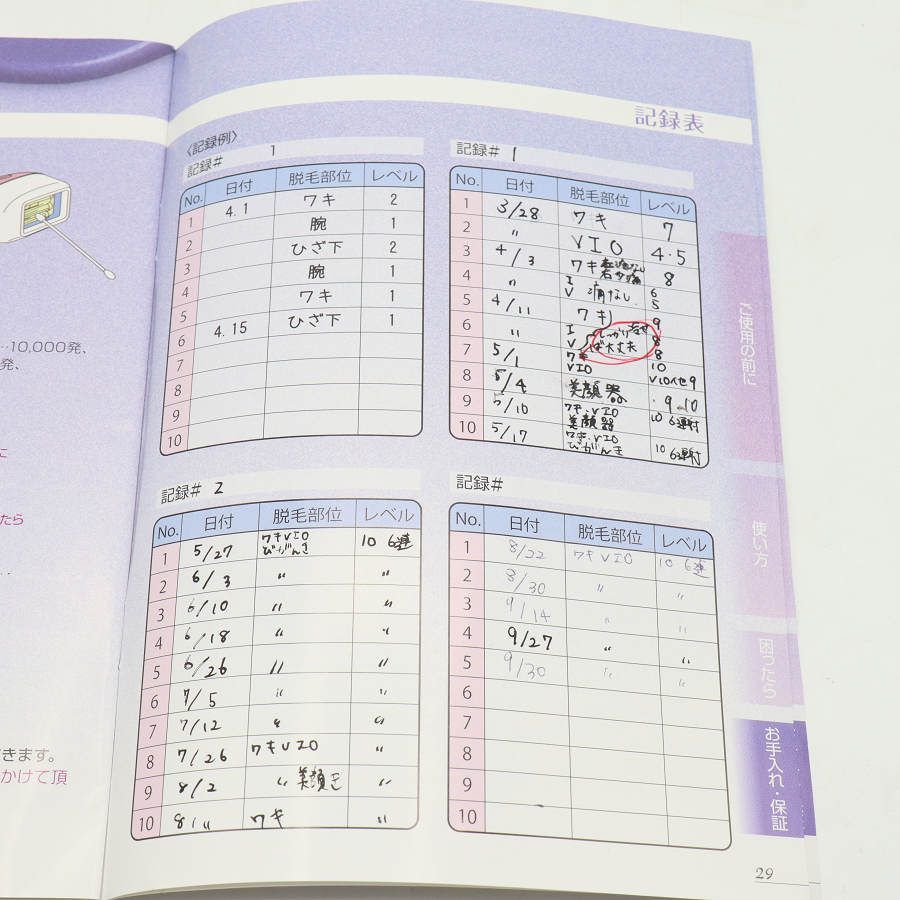 記録表
〈記録例〉
記録# 1
No. 日付 脱毛部位 レベル
1 4.1 ワキ 2
2 腕 1
3 ひざ下 2
4 腕 1
5 ワキ 1
6 4.15 ひざ下 1
7
8
9
10
記録# 1
No. 日付 脱毛部位 レベル
1 3/28 ワキ 7
2 〃 VIO 4・5
3 4/3 ワキ 8
4 〃 I 6
V 痛なし 5
5 4/11 ワキ 9
6 〃 I 8
V 8
ば大丈夫
7 5/1 ワキ 10
VIO VIO 9
8 5/4 美顔器 9 10
9 5/10 ワキ・VIO 10 6連付
美顔器
10 5/17 ワキ・VIO 10 6連付
びがんき
記録# 2
No. 日付 脱毛部位 レベル
1 5/27 ワキVIO 10 6連
びがんき
2 6/3 〃 〃
3 6/10 〃 〃
4 6/18 〃 〃
5 6/26 〃 〃
6 7/5 〃 〃
7 7/12 〃 〃
8 7/26 ワキVIO 〃
9 8/2 〃 美顔き 〃
10 8/〃 ワキ 〃
記録#
No. 日付 脱毛部位 レベル
1 8/22 ワキVIO 10 6連
2 8/30 〃 〃
3 9/14 〃 〃
4 9/27 〃 〃
5 9/30 〃 〃
6
7
8
9
10
…10,000発、
発、
に
たら
きます。
かけて頂
ご使用の前に
使い方
困ったら
お手入れ・保証
29